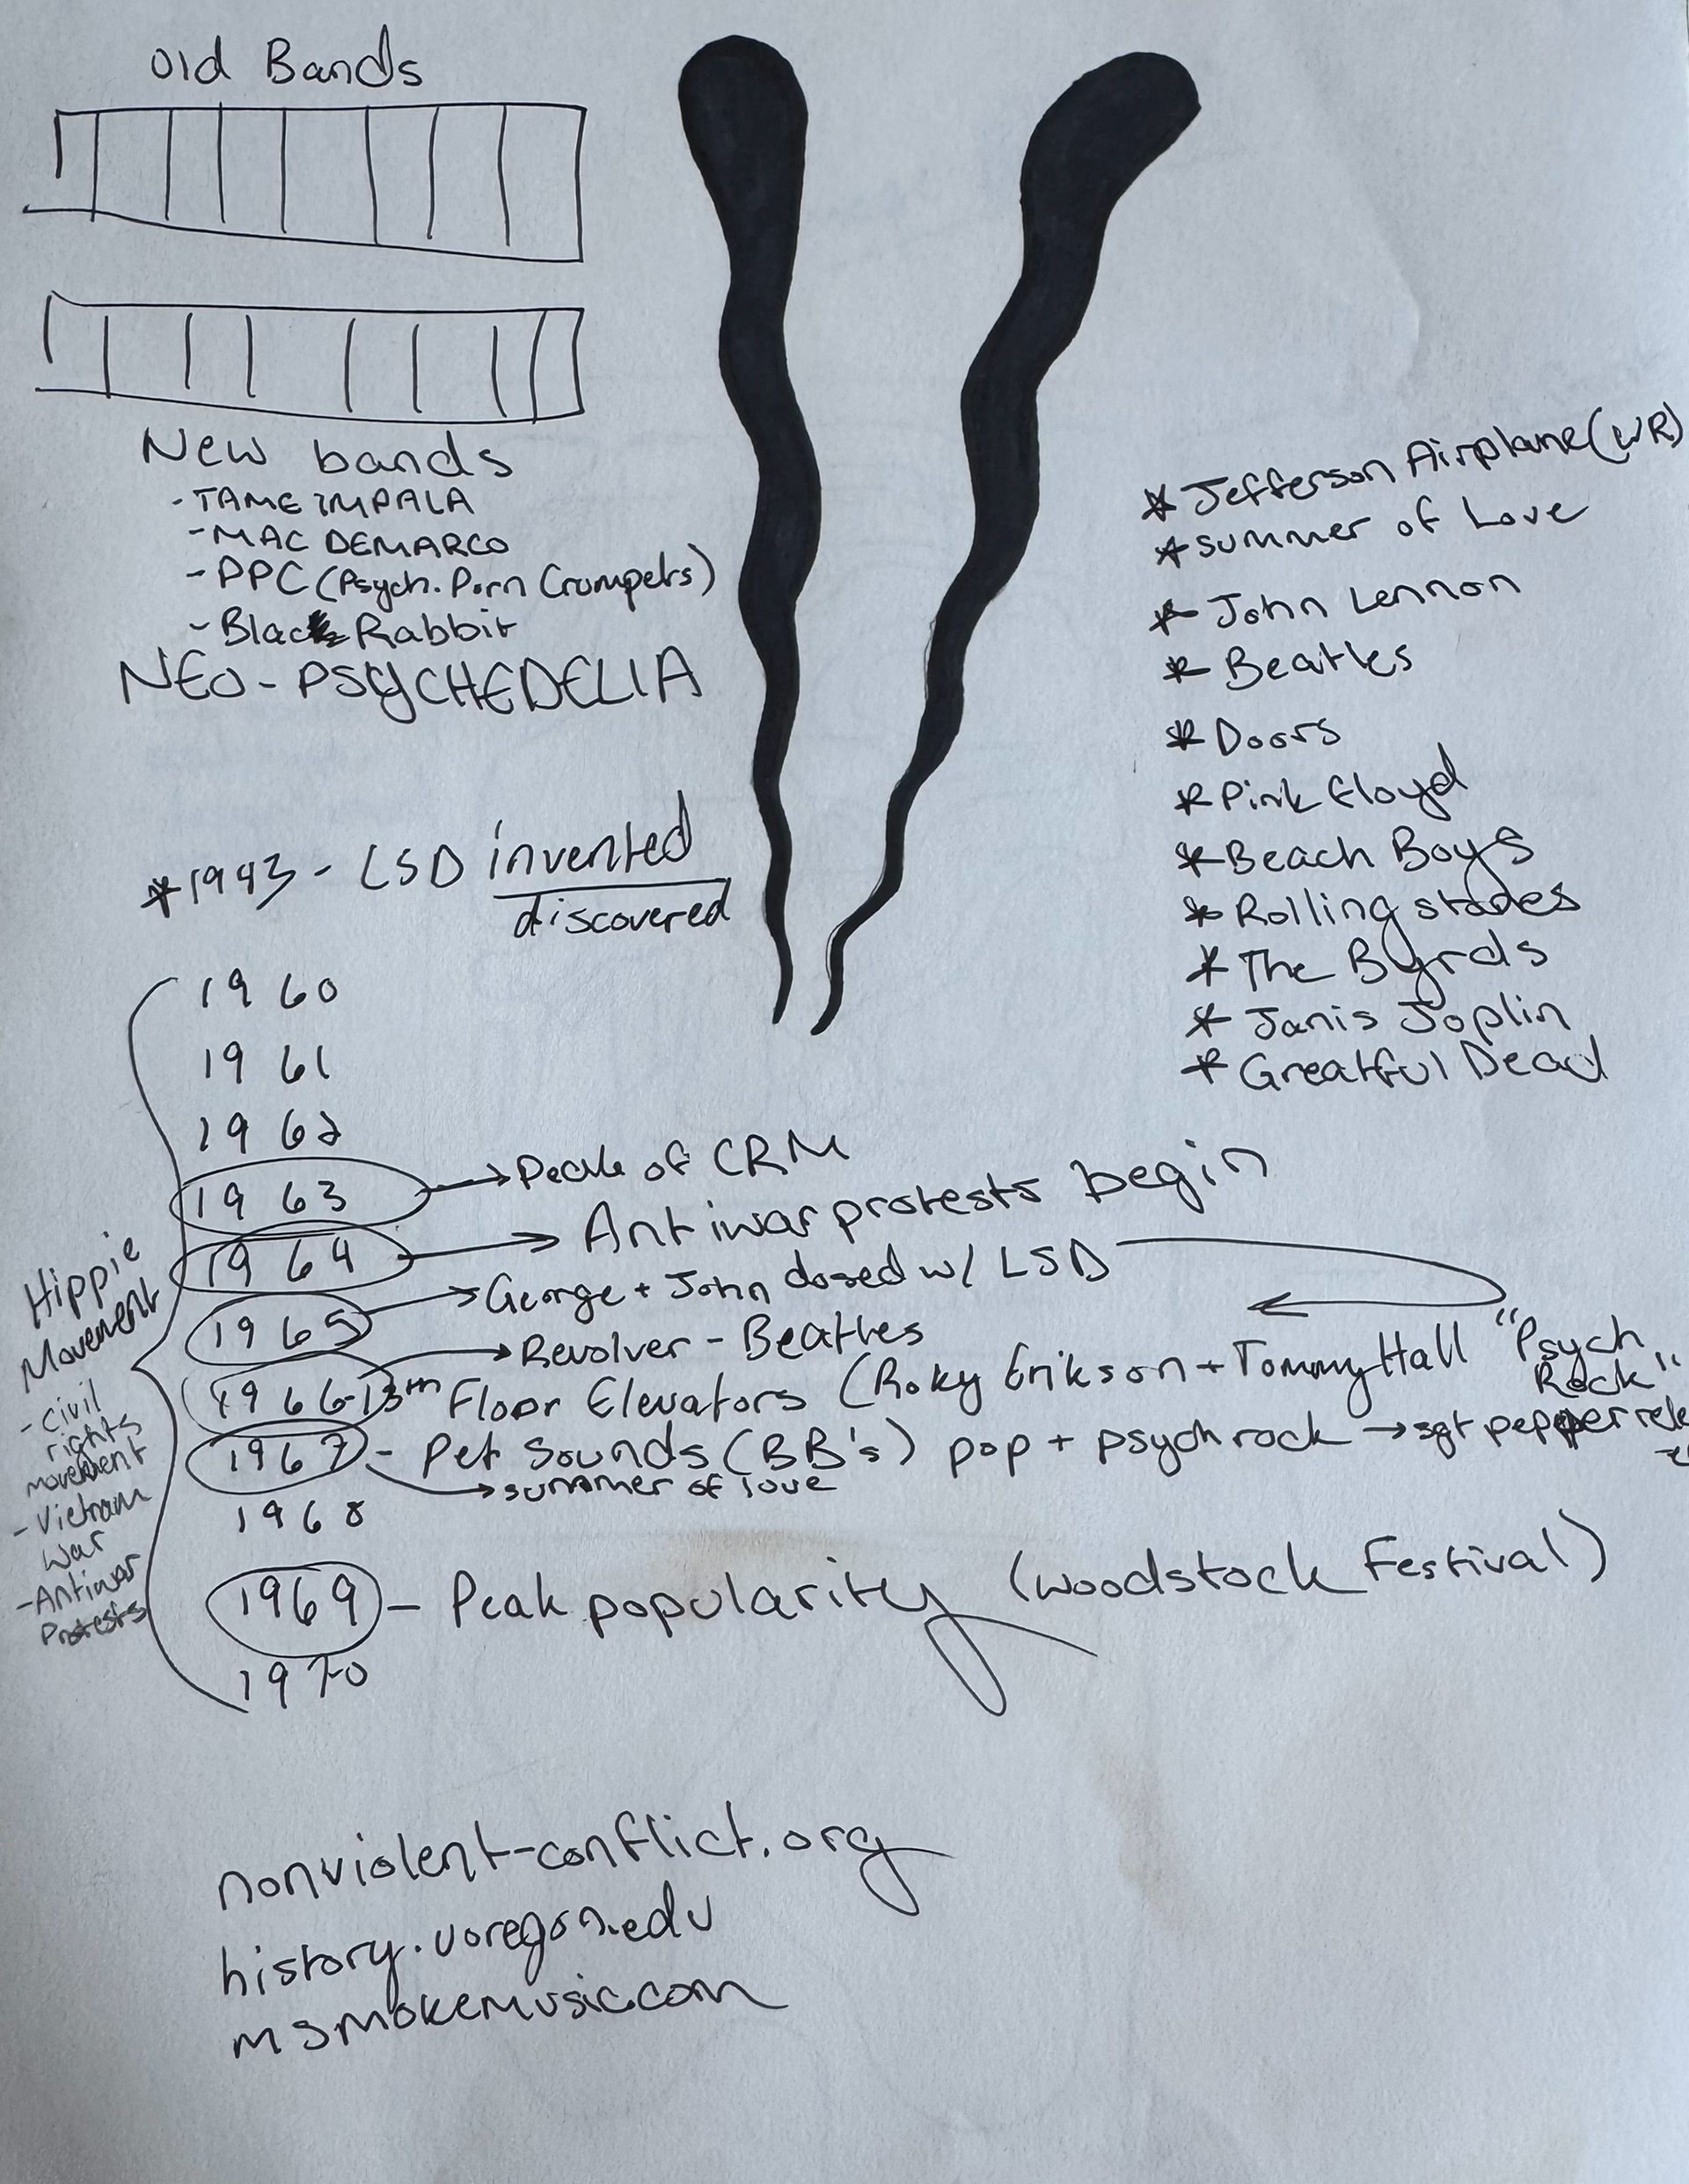 Old Bands
New bands
- TAME IMPALA
- MAC DEMARCO
- PPC (Psych. Porn Crumpets)
- Black Rabbit
NEO-PSYCHEDELIA
* Jefferson Airplane (WR)
* Summer of Love
* John Lennon
* Beatles
* Doors
* Pink Floyd
* Beach Boys
* Rolling stones
* The Byrds
* Janis Joplin
* Greatful Dead
* 1943 - LSD invented
discovered
1960
1961
1962
1963 → Peak of CRM
1964 → Antiwar protests begin
1965 → George + John dosed w/ LSD
→ Revolver - Beatles
1966 - 13th Floor Elevators (Roky Erikson + Tommy Hall "Psych
Rock"
1967 - Pet Sounds (BB's) pop + psych rock → sgt pepper rele
→ summer of love
1968
1969 - Peak popularity (Woodstock Festival)
1970
Hippie
Movement
- Civil
rights
movement
- Vietnam
War
- Antiwar
Protests
nonviolent-conflict.org
history.uoregon.edu
msmokemusic.com